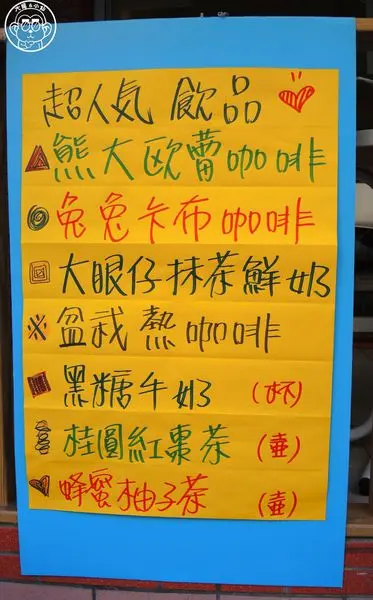 超人気 飲品
熊大歐蕾咖啡
兔兔卡布咖啡
大眼仔抹茶鮮奶
盆栽熱咖啡
黑糖牛奶 (杯)
桂圓紅棗茶 (壺)
蜂蜜柚子茶 (壺)